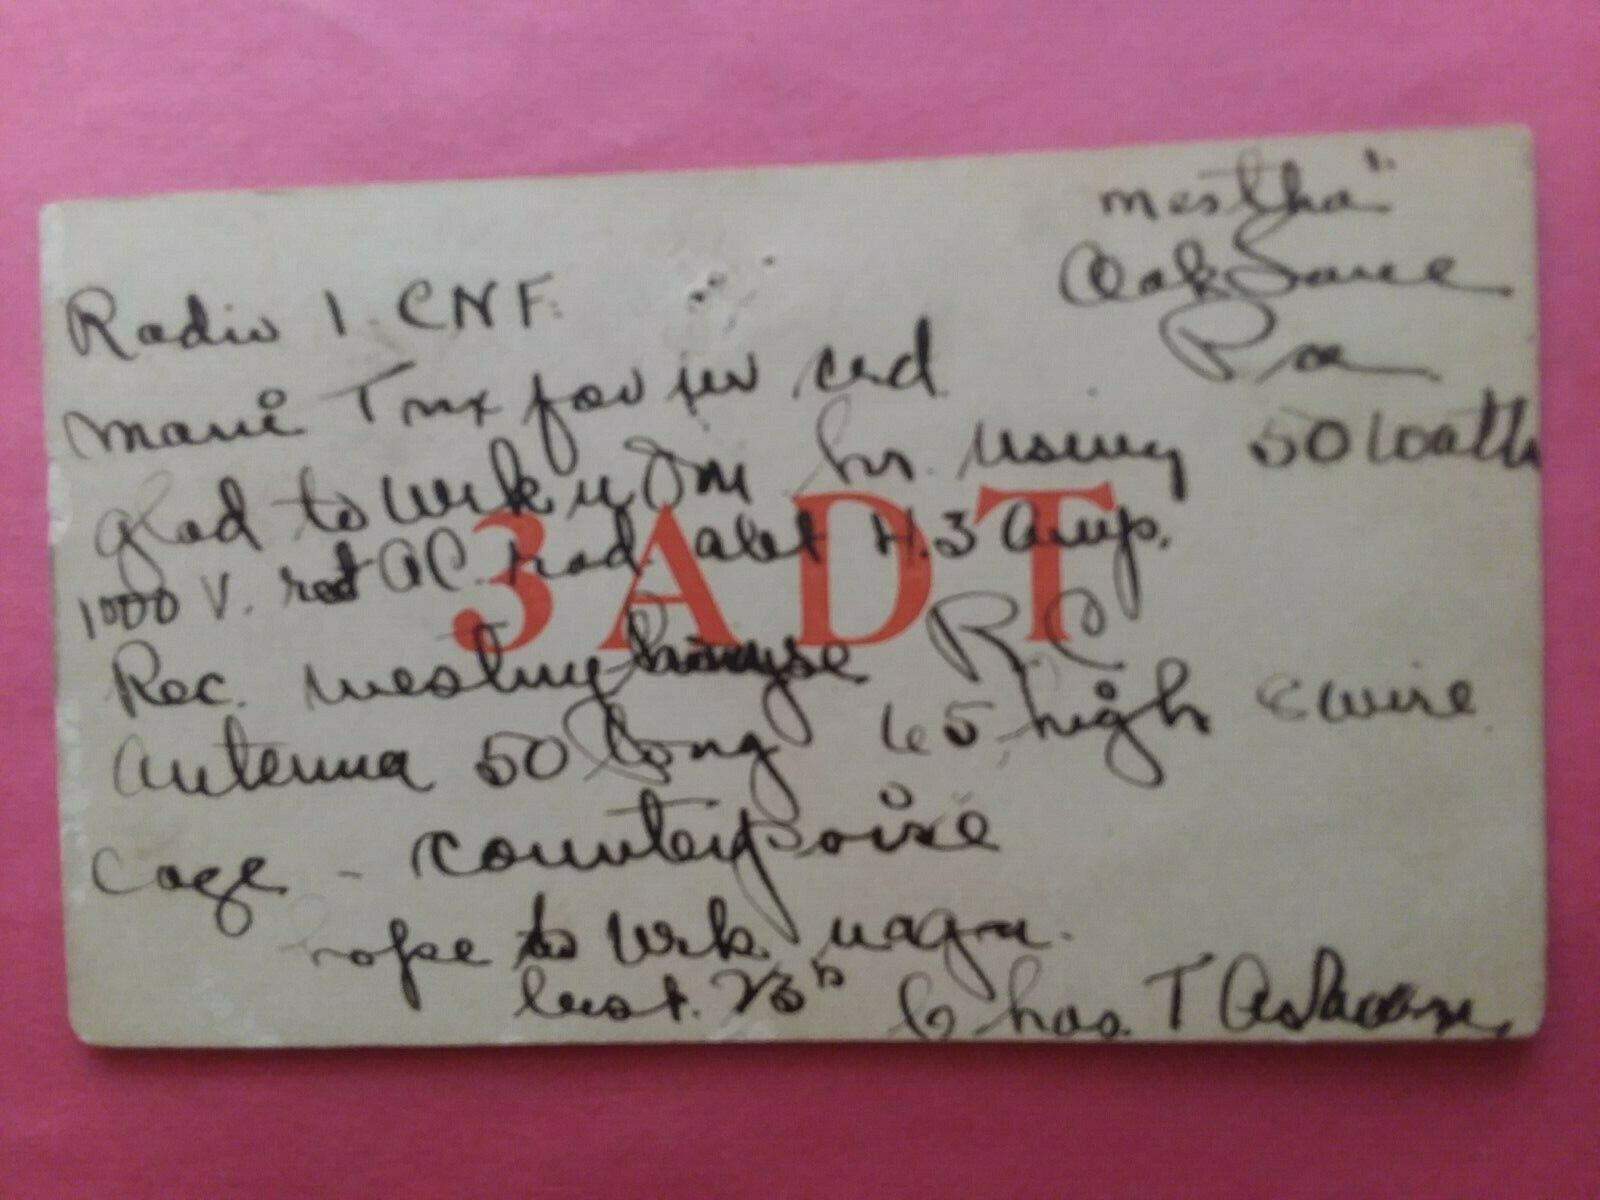 "Mestha"
Oak Lane
Pa
Radio 1 CNF.
Mani Tnx for ur crd
glad to wrk u OM hr. using 50 watth
1000 V. rect AC. rad abt 4.3 amp.
3ADT
Rec. Westinghouse RC
Antenna 50 long 65 high 8 wire
Cage - Counterpoise
hope to wrk. u agn.
best. 73s Chas. T